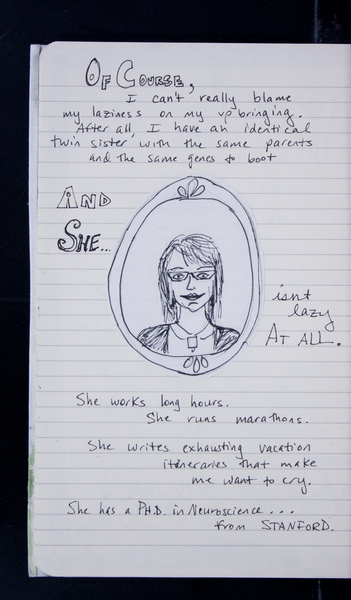 OF COURSE,
I can't really blame
my laziness on my upbringing.
After all, I have an identical
twin sister with the same parents
and the same genes to boot
AND
SHE...
isnt
lazy
AT ALL.
She works long hours.
She runs marathons.
She writes exhausting vacation
itineraries that make
me want to cry.
She has a PH.D. in Neuroscience...
from STANFORD.